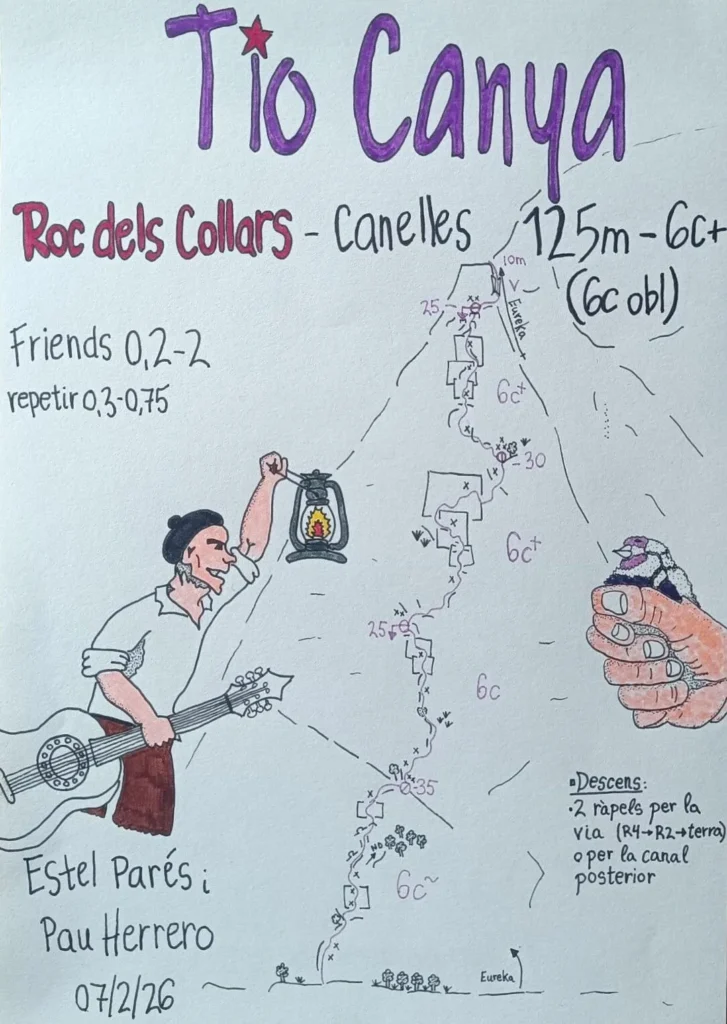 Tio Canya
Roc dels Collars - Canelles
125m - 6c+
(6c obl)
Friends 0,2-2
repetir 0,3-0,75
10m
V
Eureka
25
6c+
30
6c+
25
6c
35
NO
6c~
Eureka
Descens:
·2 ràpels per la
via (R4→R2→terra)
o per la canal
posterior
Estel Parés i
Pau Herrero
07/2/26